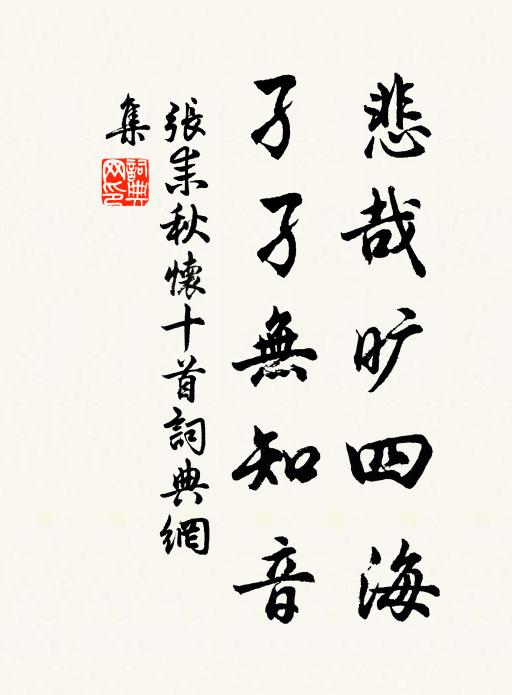 悲哉旷四海
孑孑無知音
張耒秋懷十首詞典網
集
詞典
网印